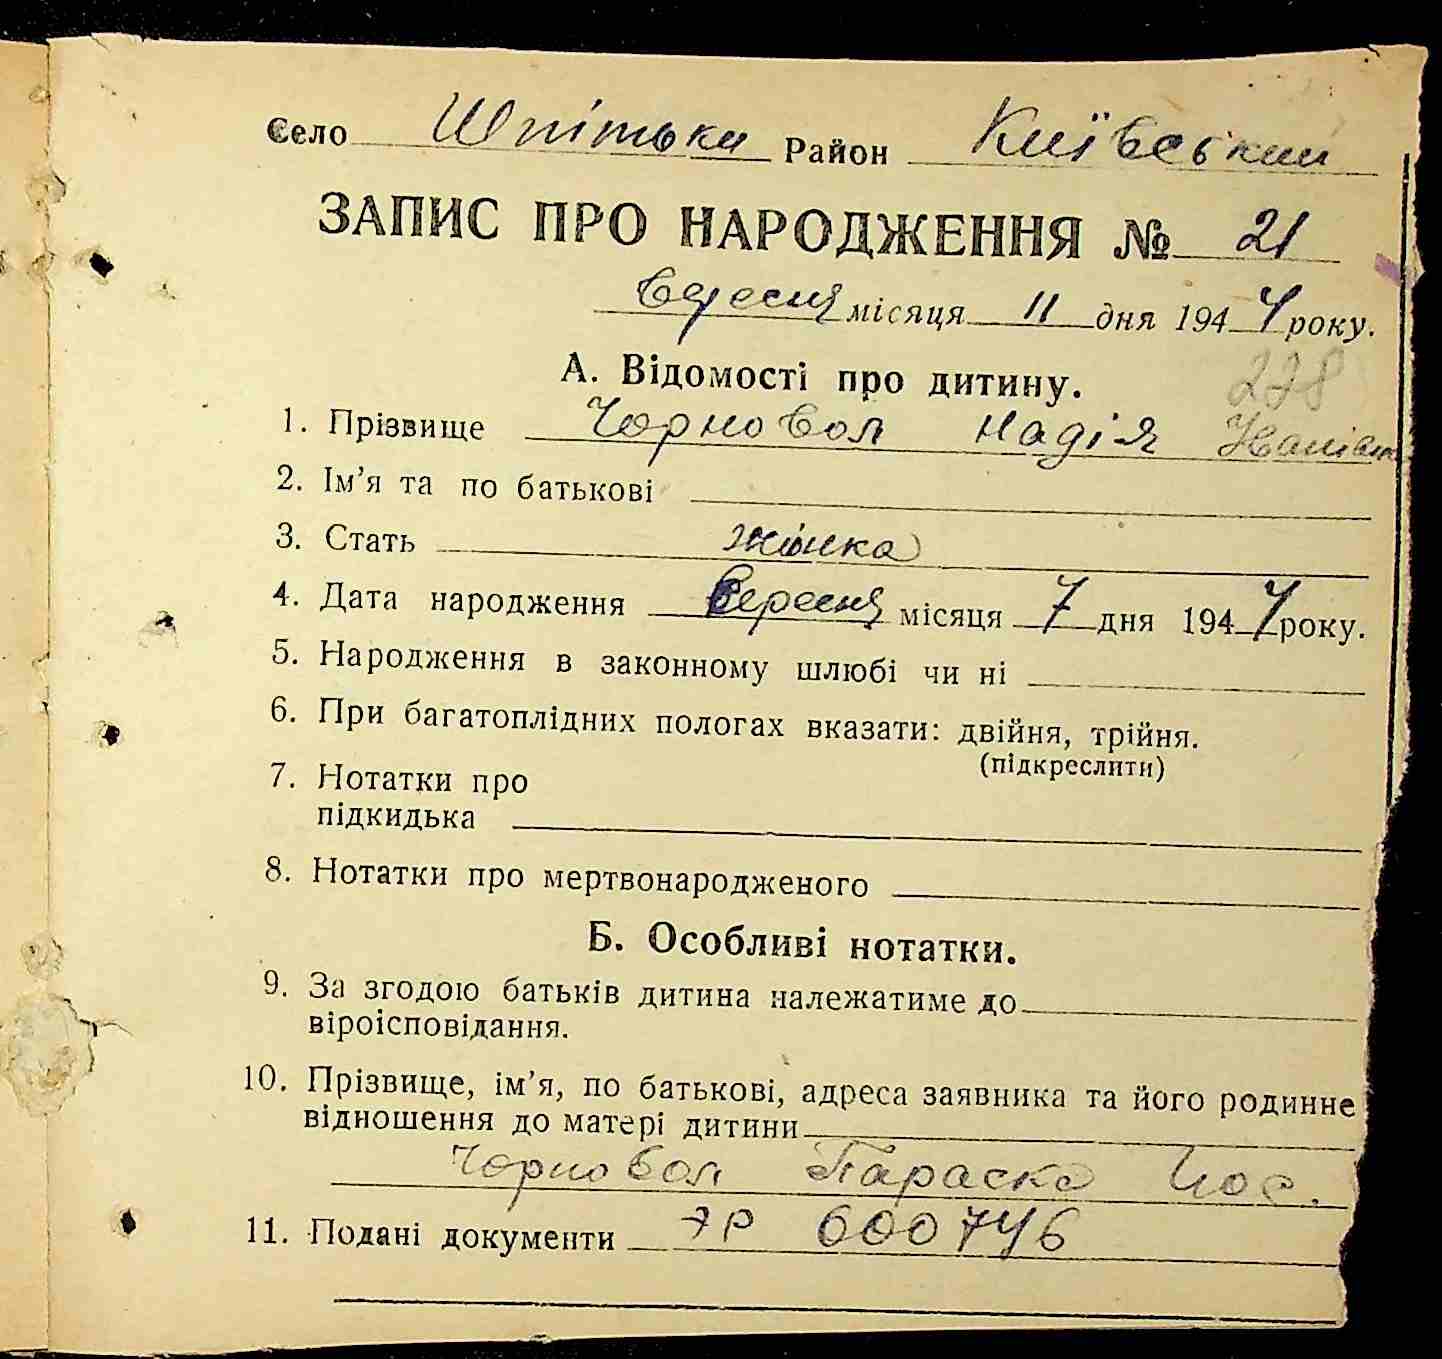 Село Шпітьки Район Київський
ЗАПИС ПРО НАРОДЖЕННЯ № 21
Вересня місяця 11 дня 1944 року.
А. Відомості про дитину. 278
1. Прізвище Чорновол Надія Іванівна
2. Ім’я та по батькові
3. Стать жінка
4. Дата народження Вересня місяця 7 дня 1944 року.
5. Народження в законному шлюбі чи ні
6. При багатоплідних пологах вказати: двійня, трійня.
(підкреслити)
7. Нотатки про
підкидька
8. Нотатки про мертвонародженого
Б. Особливі нотатки.
9. За згодою батьків дитина належатиме до
віроісповідання.
10. Прізвище, ім’я, по батькові, адреса заявника та його родинне
відношення до матері дитини
Чорновол Параска Йос.
11. Подані документи 600746